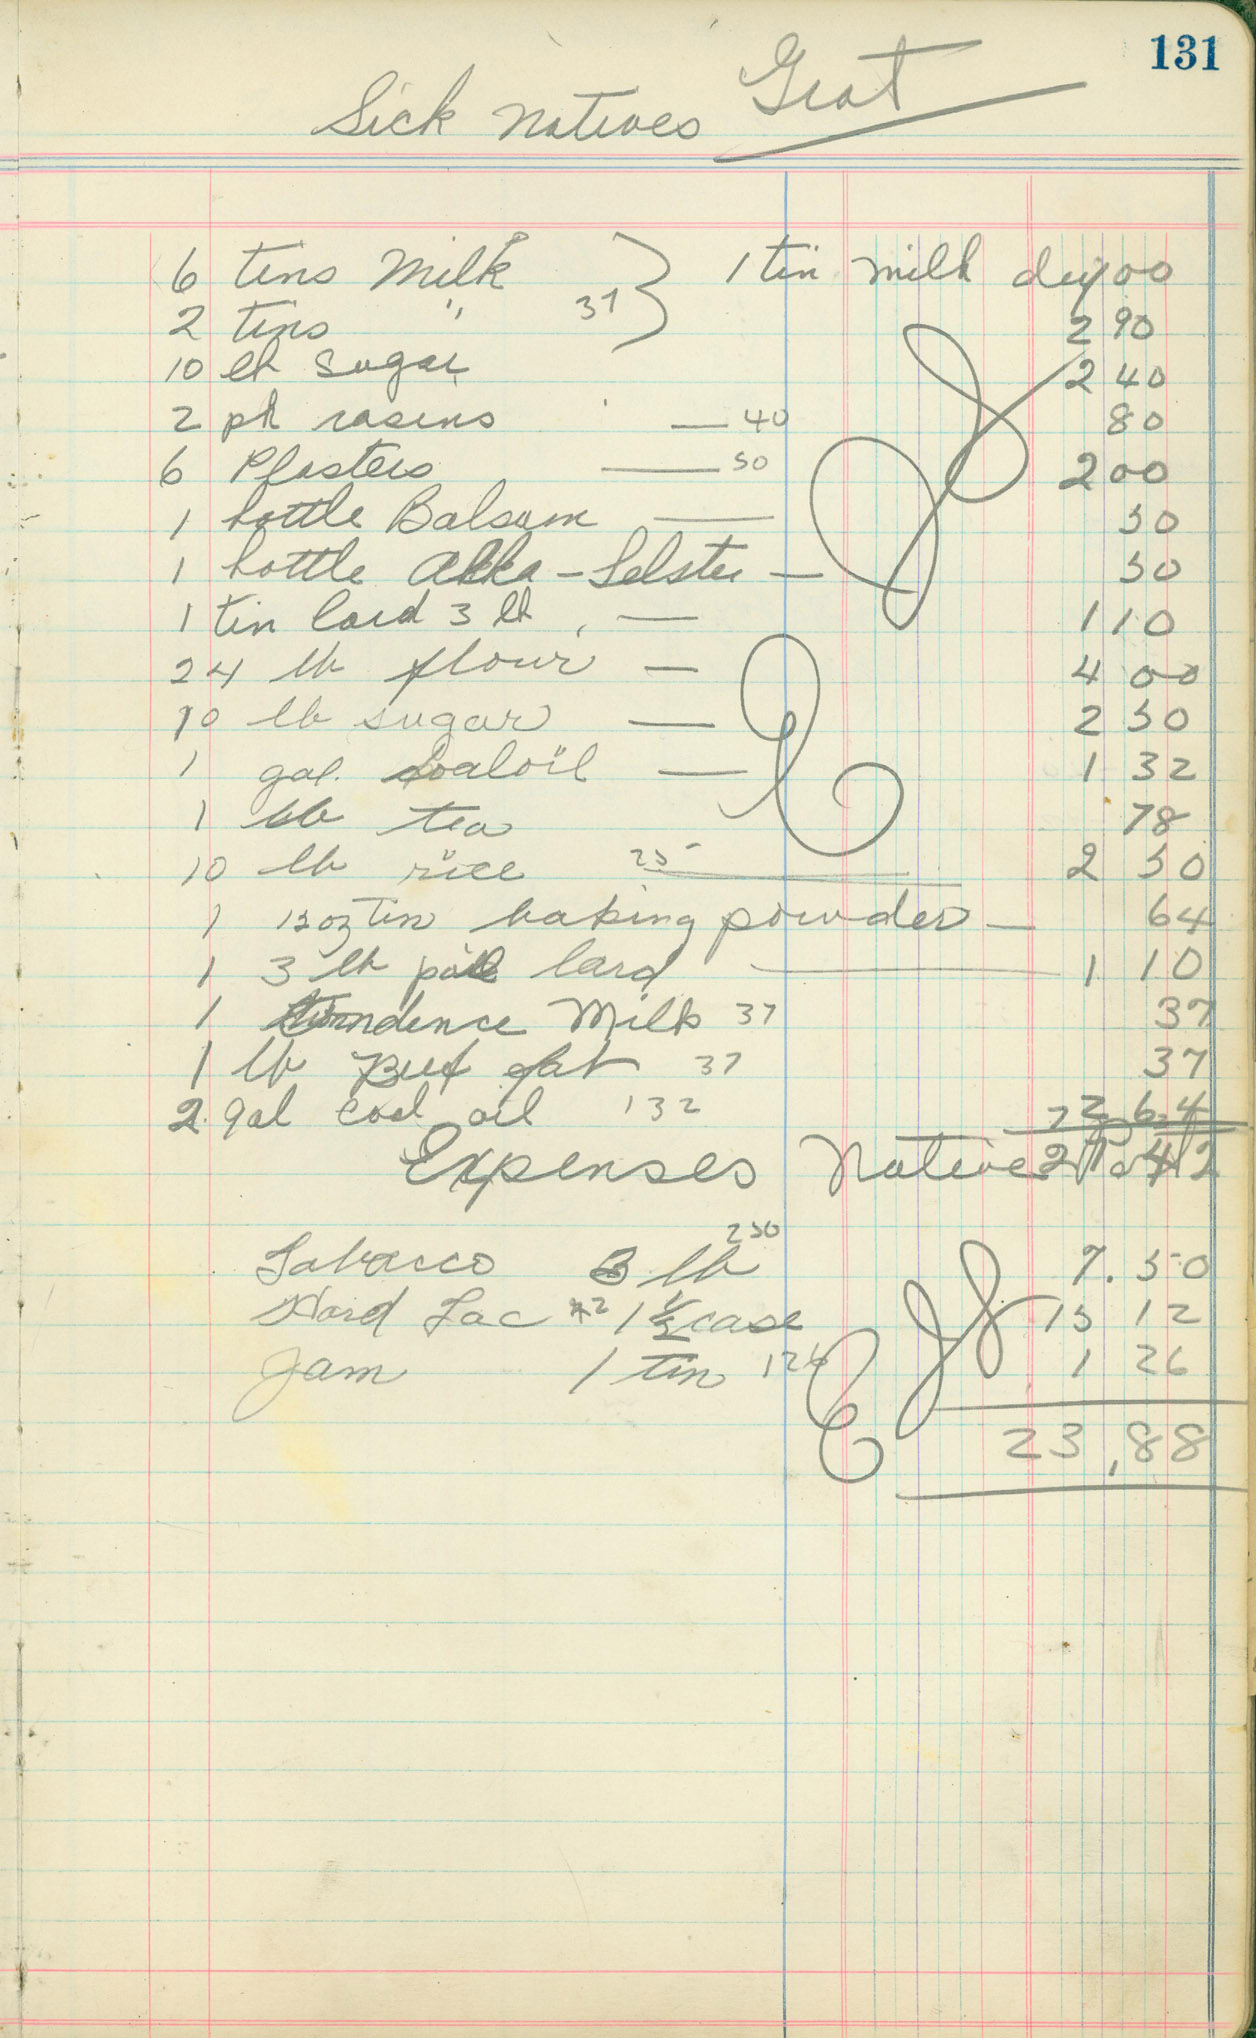 131
Sick Natives Grat
6 tins Milk 1 tin milk day 00
2 tins " 37 2 90
10 lb Sugar 2 40
2 pk rasins — 40 80
6 Plasters — 50 2 00
1 bottle Balsum — 50
1 bottle Alka-Selster — 50
1 tin lard 3 lb, — 1 10
24 lb flour — 4 00
10 lb sugar — 2 50
1 gal. coaloil — 1 32
1 lb tea 78
10 lb rice 25 2 50
1 12 oz tin baking powder — 64
1 3 lb pail lard — 1 10
1 Condence Milk 37 37
1 lb Buf fat 37 37
2 gal coal oil 132 2 64
Expenses Native
Tabacco 3 lb 250 7.50
Hard Tac #2 1 1/2 case 15 12
Jam 1 tin 126 1 26
23,88